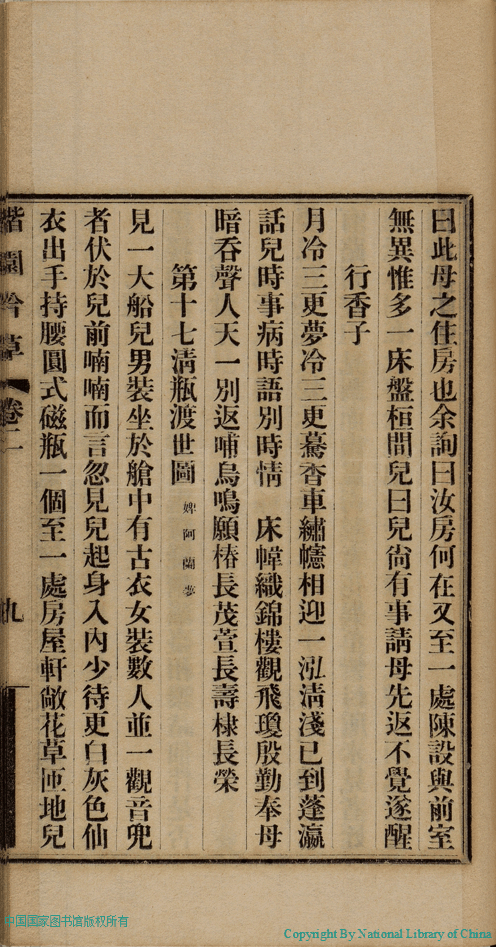 曰此母之住房也余詢曰汝房何在又至一處陳設與前室
無異惟多一床盤桓間兒曰兒尙有事請母先返不覺遂醒
行香子
月冷三更夢冷三更驀杳車繡幰相迎一泓淸淺已到蓬瀛
話兒時事病時語別時情 床幃織錦樓觀飛瓊殷勤奉母
暗吞聲人天一別返哺烏鳴願椿長茂萱長壽棣長榮
第十七淸瓶渡世圖 婢阿蘭夢
見一大船兒男裝坐於艙中有古衣女裝數人並一觀音兜
者伏於兒前喃喃而言忽見兒起身入內少待更白灰色仙
衣出手持腰圓式磁瓶一個至一處房屋軒敞花草匝地兒
園吟草 卷二 九
中国国家图书馆版权所有
Copyright By National Library of China